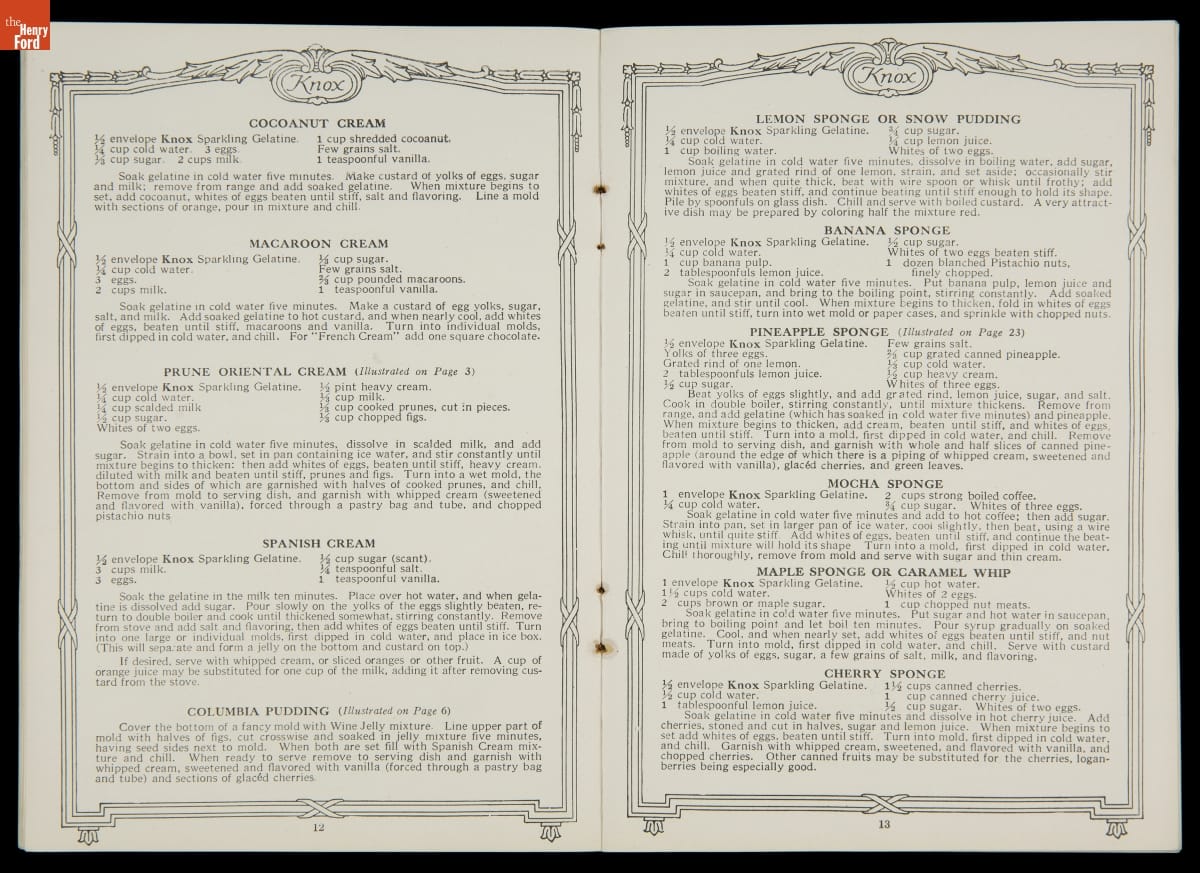 the
Henry
Ford
Knox
COCOANUT CREAM
½ envelope Knox Sparkling Gelatine. 1 cup shredded cocoanut.
¼ cup cold water. 3 eggs. Few grains salt.
⅓ cup sugar. 2 cups milk. 1 teaspoonful vanilla.
Soak gelatine in cold water five minutes. Make custard of yolks of eggs, sugar
and milk; remove from range and add soaked gelatine. When mixture begins to
set, add cocoanut, whites of eggs beaten until stiff, salt and flavoring. Line a mold
with sections of orange, pour in mixture and chill.
MACAROON CREAM
½ envelope Knox Sparkling Gelatine. ⅓ cup sugar.
¼ cup cold water. Few grains salt.
3 eggs. ⅔ cup pounded macaroons.
2 cups milk. 1 teaspoonful vanilla.
Soak gelatine in cold water five minutes. Make a custard of egg yolks, sugar,
salt, and milk. Add soaked gelatine to hot custard, and when nearly cool, add whites
of eggs, beaten until stiff, macaroons and vanilla. Turn into individual molds,
first dipped in cold water, and chill. For "French Cream" add one square chocolate.
PRUNE ORIENTAL CREAM (Illustrated on Page 3)
½ envelope Knox Sparkling Gelatine. ½ pint heavy cream.
¼ cup cold water. ⅓ cup milk.
¼ cup scalded milk ⅓ cup cooked prunes, cut in pieces.
½ cup sugar. ⅓ cup chopped figs.
Whites of two eggs.
Soak gelatine in cold water five minutes, dissolve in scalded milk, and add
sugar. Strain into a bowl, set in pan containing ice water, and stir constantly until
mixture begins to thicken: then add whites of eggs, beaten until stiff, heavy cream,
diluted with milk and beaten until stiff, prunes and figs. Turn into a wet mold, the
bottom and sides of which are garnished with halves of cooked prunes, and chill.
Remove from mold to serving dish, and garnish with whipped cream (sweetened
and flavored with vanilla), forced through a pastry bag and tube, and chopped
pistachio nuts
SPANISH CREAM
½ envelope Knox Sparkling Gelatine. ½ cup sugar (scant).
3 cups milk. ¼ teaspoonful salt.
3 eggs. 1 teaspoonful vanilla.
Soak the gelatine in the milk ten minutes. Place over hot water, and when gela-
tine is dissolved add sugar. Pour slowly on the yolks of the eggs slightly beaten, re-
turn to double boiler and cook until thickened somewhat, stirring constantly. Remove
from stove and add salt and flavoring, then add whites of eggs beaten until stiff. Turn
into one large or individual molds, first dipped in cold water, and place in ice box.
(This will separate and form a jelly on the bottom and custard on top.)
If desired, serve with whipped cream, or sliced oranges or other fruit. A cup of
orange juice may be substituted for one cup of the milk, adding it after removing cus-
tard from the stove.
COLUMBIA PUDDING (Illustrated on Page 6)
Cover the bottom of a fancy mold with Wine Jelly mixture. Line upper part of
mold with halves of figs, cut crosswise and soaked in jelly mixture five minutes,
having seed sides next to mold. When both are set fill with Spanish Cream mix-
ture and chill. When ready to serve remove to serving dish and garnish with
whipped cream, sweetened and flavored with vanilla (forced through a pastry bag
and tube) and sections of glacéd cherries.
12
Knox
LEMON SPONGE OR SNOW PUDDING
½ envelope Knox Sparkling Gelatine. ¾ cup sugar.
¼ cup cold water. ¼ cup lemon juice.
1 cup boiling water. Whites of two eggs.
Soak gelatine in cold water five minutes, dissolve in boiling water, add sugar,
lemon juice and grated rind of one lemon, strain, and set aside; occasionally stir
mixture, and when quite thick, beat with wire spoon or whisk until frothy; add
whites of eggs beaten stiff, and continue beating until stiff enough to hold its shape.
Pile by spoonfuls on glass dish. Chill and serve with boiled custard. A very attract-
ive dish may be prepared by coloring half the mixture red.
BANANA SPONGE
½ envelope Knox Sparkling Gelatine. ½ cup sugar.
¼ cup cold water. Whites of two eggs beaten stiff.
1 cup banana pulp. 1 dozen blanched Pistachio nuts,
2 tablespoonfuls lemon juice. finely chopped.
Soak gelatine in cold water five minutes. Put banana pulp, lemon juice and
sugar in saucepan, and bring to the boiling point, stirring constantly. Add soaked
gelatine, and stir until cool. When mixture begins to thicken, fold in whites of eggs
beaten until stiff, turn into wet mold or paper cases, and sprinkle with chopped nuts.
PINEAPPLE SPONGE (Illustrated on Page 23)
½ envelope Knox Sparkling Gelatine. Few grains salt.
Yolks of three eggs. ⅔ cup grated canned pineapple.
Grated rind of one lemon. ⅓ cup cold water.
2 tablespoonfuls lemon juice. ½ cup heavy cream.
½ cup sugar. Whites of three eggs.
Beat yolks of eggs slightly, and add grated rind, lemon juice, sugar, and salt.
Cook in double boiler, stirring constantly, until mixture thickens. Remove from
range, and add gelatine (which has soaked in cold water five minutes) and pineapple.
When mixture begins to thicken, add cream, beaten until stiff, and whites of eggs,
beaten until stiff. Turn into a mold, first dipped in cold water, and chill. Remove
from mold to serving dish, and garnish with whole and half slices of canned pine-
apple (around the edge of which there is a piping of whipped cream, sweetened and
flavored with vanilla), glacéd cherries, and green leaves.
MOCHA SPONGE
1 envelope Knox Sparkling Gelatine. 2 cups strong boiled coffee.
¼ cup cold water. ¾ cup sugar. Whites of three eggs.
Soak gelatine in cold water five minutes and add to hot coffee; then add sugar.
Strain into pan, set in larger pan of ice water, cool slightly, then beat, using a wire
whisk, until quite stiff. Add whites of eggs, beaten until stiff, and continue the beat-
ing until mixture will hold its shape Turn into a mold, first dipped in cold water.
Chill thoroughly, remove from mold and serve with sugar and thin cream.
MAPLE SPONGE OR CARAMEL WHIP
1 envelope Knox Sparkling Gelatine. ½ cup hot water.
1½ cups cold water. Whites of 2 eggs.
2 cups brown or maple sugar. 1 cup chopped nut meats.
Soak gelatine in cold water five minutes. Put sugar and hot water in saucepan,
bring to boiling point and let boil ten minutes. Pour syrup gradually on soaked
gelatine. Cool, and when nearly set, add whites of eggs beaten until stiff, and nut
meats. Turn into mold, first dipped in cold water, and chill. Serve with custard
made of yolks of eggs, sugar, a few grains of salt, milk, and flavoring.
CHERRY SPONGE
½ envelope Knox Sparkling Gelatine. 1½ cups canned cherries.
½ cup cold water. 1 cup canned cherry juice.
1 tablespoonful lemon juice. ½ cup sugar. Whites of two eggs.
Soak gelatine in cold water five minutes and dissolve in hot cherry juice. Add
cherries, stoned and cut in halves, sugar and lemon juice. When mixture begins to
set add whites of eggs, beaten until stiff. Turn into mold, first dipped in cold water,
and chill. Garnish with whipped cream, sweetened, and flavored with vanilla, and
chopped cherries. Other canned fruits may be substituted for the cherries, logan-
berries being especially good.
13